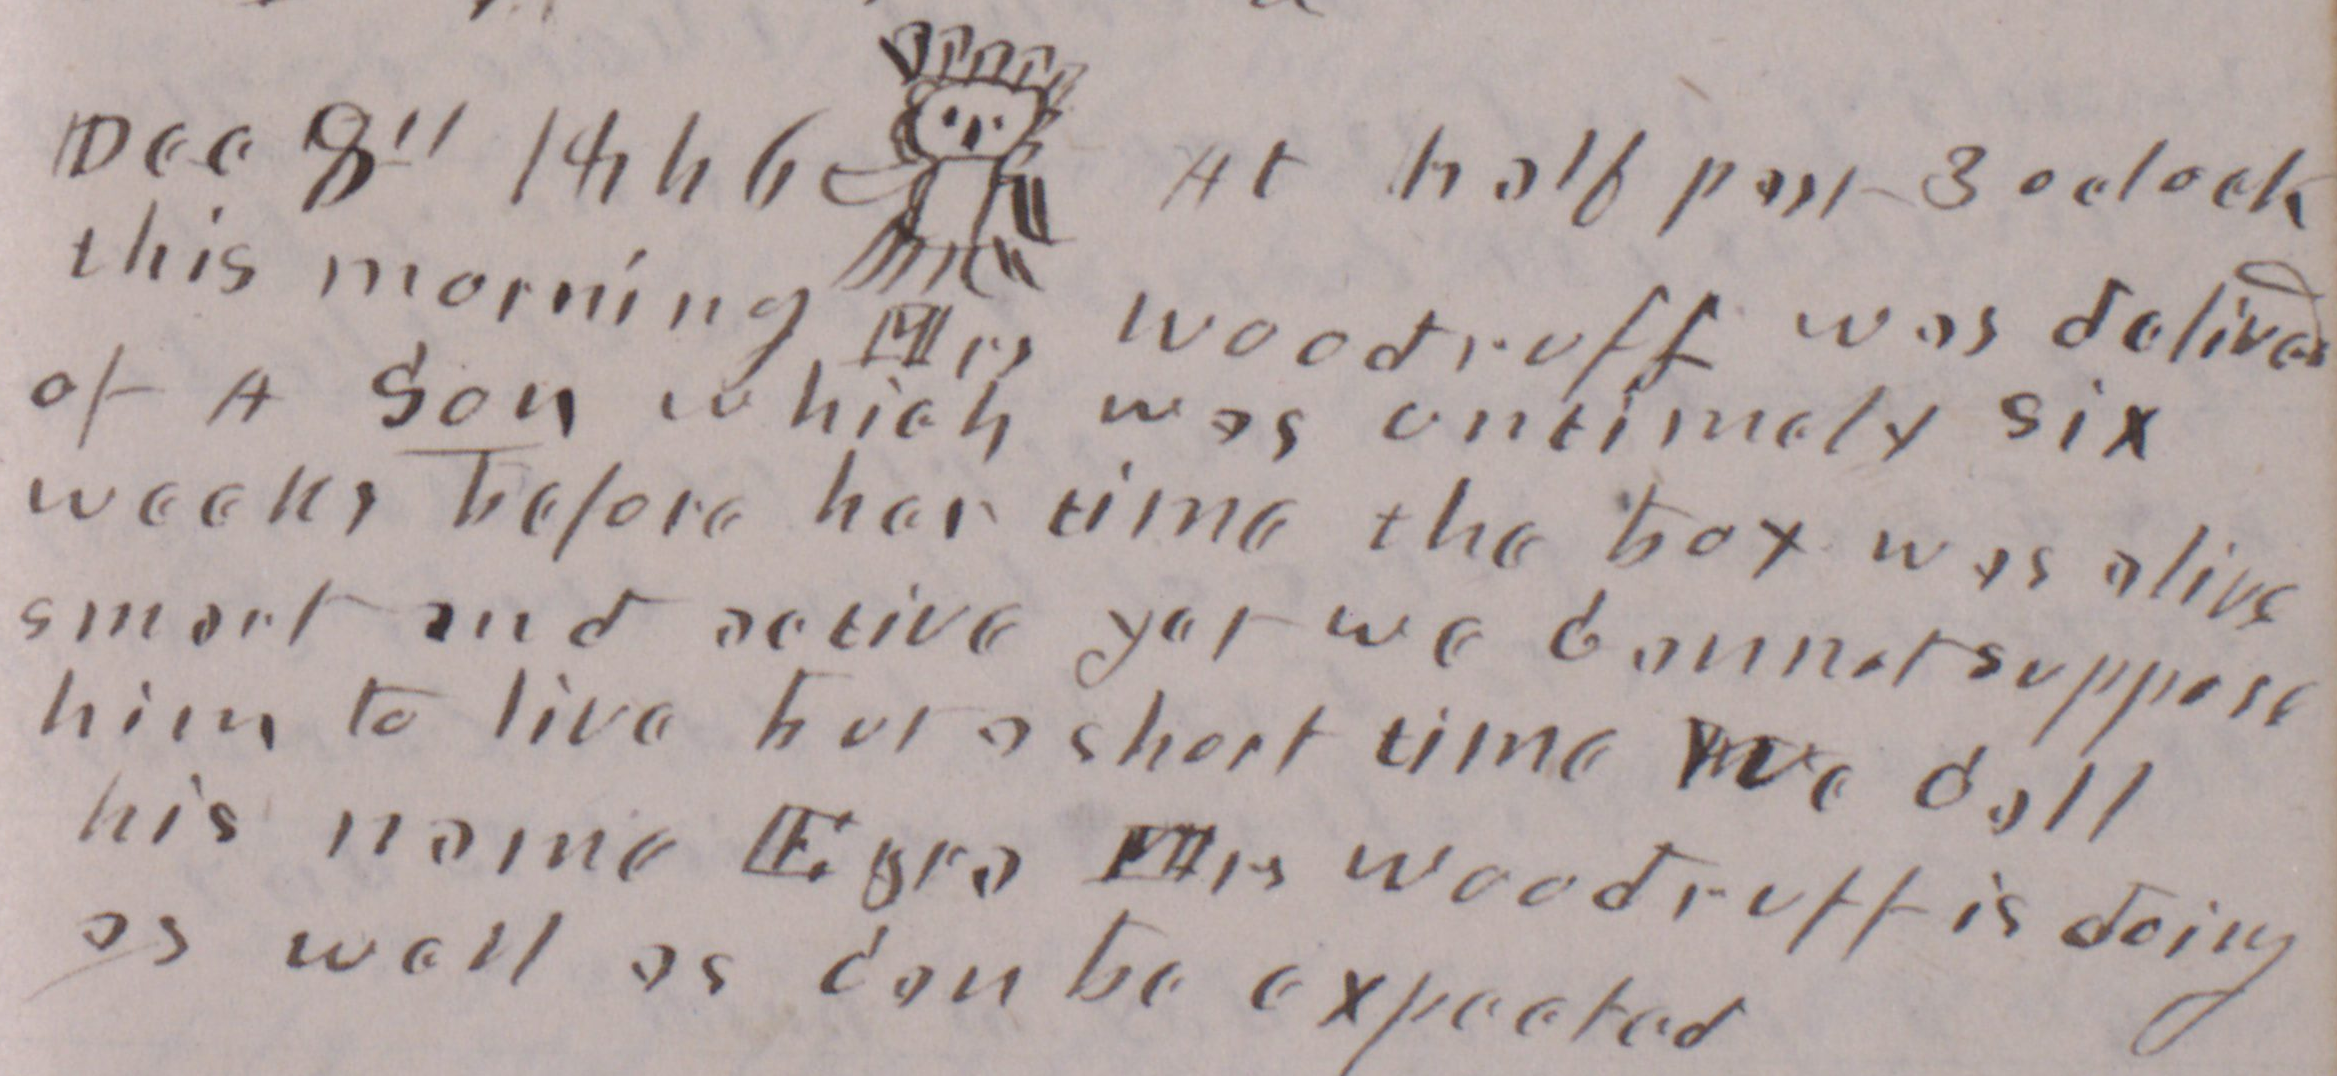 Dec 8th 1846 At half past 3 oclock
this morning Mrs Woodruff was deliverd
of A Son which was untimely six
weeks before her time the boy was alive
smart and active yet we cannot suppose
him to live but a short time We call
his name Ezra Mrs Woodruff is doing
as well as can be expected